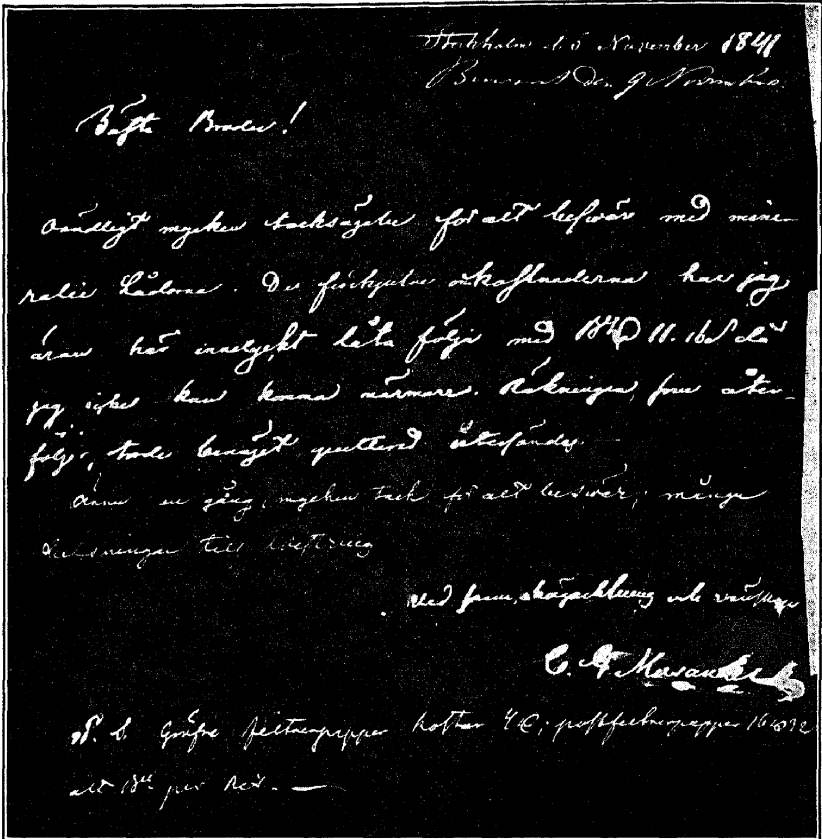 Stockholm d. 5 November 1841
Besvarat den 9 November
Bäste Broder!
Oändligt mycken tacksägelse för alt besvär med mine-
ralie Lådorna. De förskjutne omkostnaderna har jag
äran här innelyckt låta följa med 11.16 då
jag icke kan komma närmare. Räkningen, som åter-
följer, torde benäget qvitterad återsändas.
Ännu en gång, mycken tack för alt besvär; många
helsningar till
Med sann högachtning och vänskap
C. G. Mosander
N. B. Gröfre filtrerpapper kostar
alt per